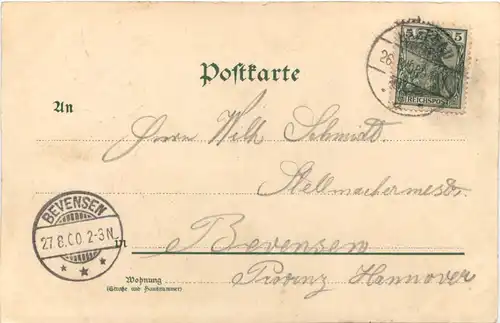 5 5
REICHSPOST
26.
Postkarte
An
Herrn Wilh Schmidt.
Stellmachermestr
BEVENSEN
27.8.00.2-3N.
in Bevensen
Provinz Hannover
Wohnung
(Straße und Hausnummer)